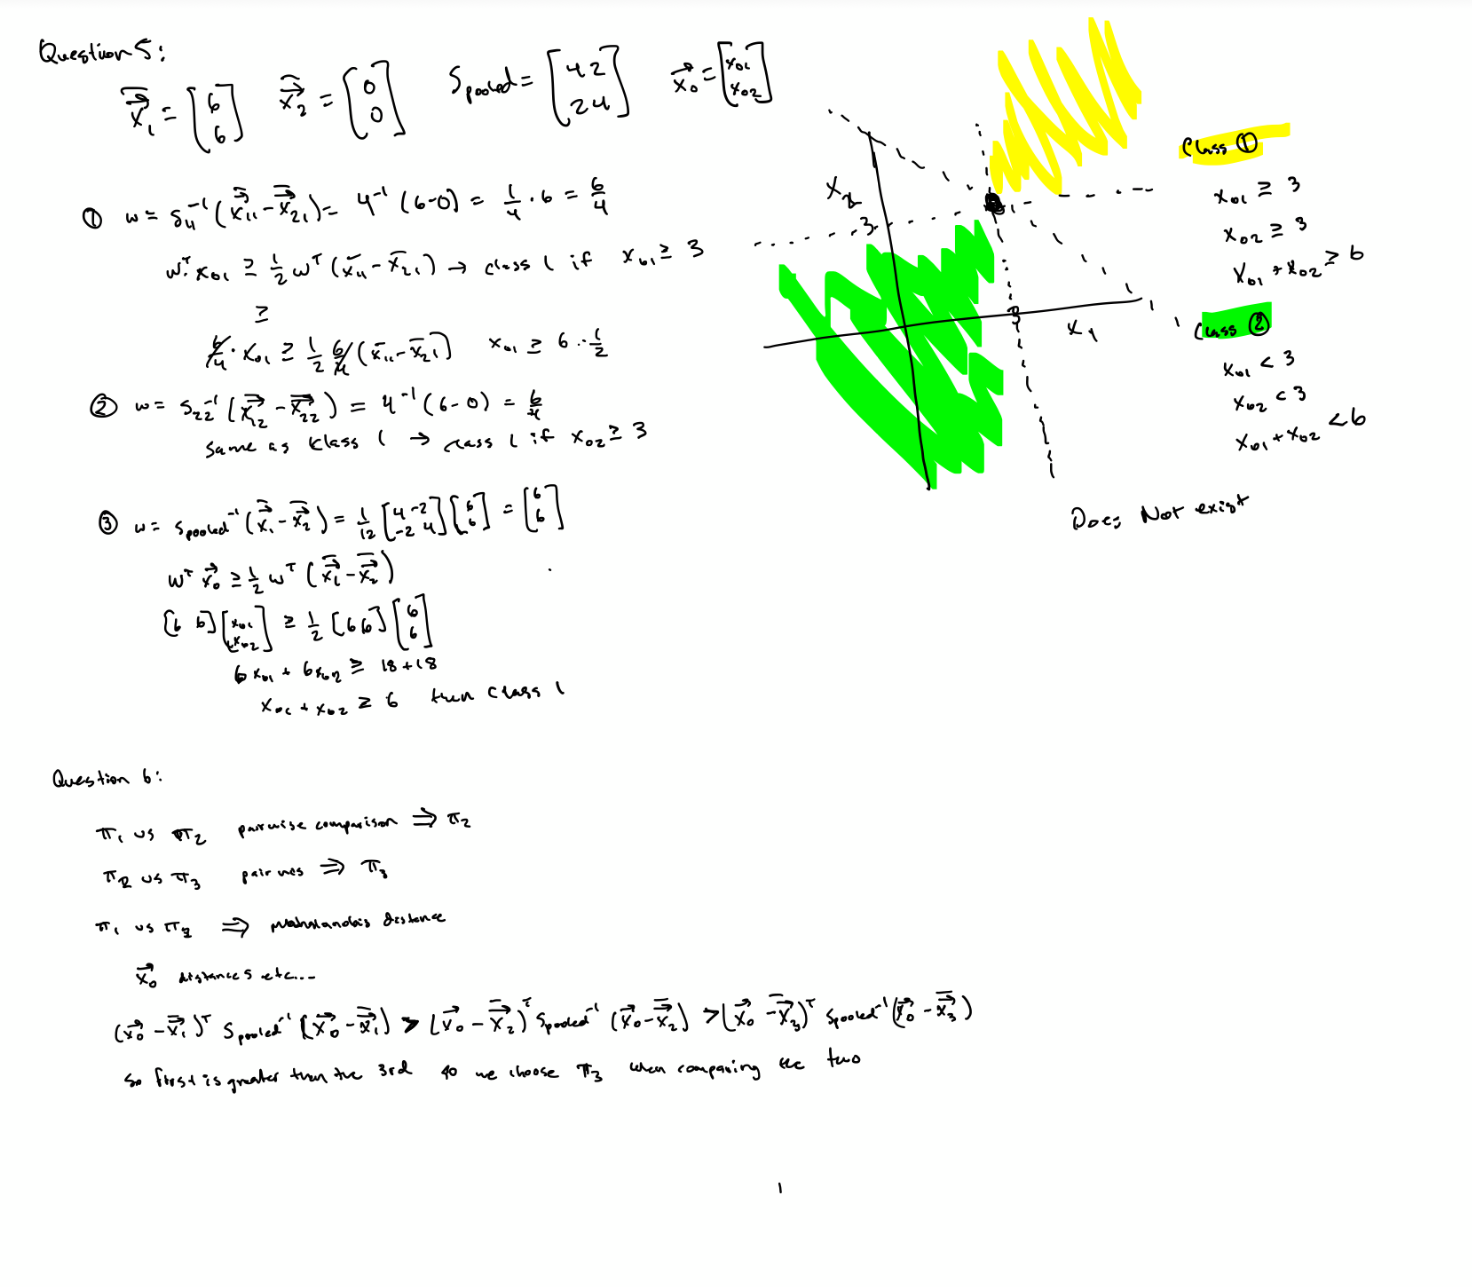 Question 5:
x̄⃗₁ = [6 6] x̄⃗₂ = [0 0] S pooled = [4 2 2 4] x⃗₀ = [x₀₁ x₀₂]
① w = S₁₁⁻¹ (x̄⃗₁₁ - x̄⃗₂₁) = 4⁻¹ (6-0) = 1/4 · 6 = 6/4
wᵀ x₀₁ ≥ 1/2 wᵀ (x̄₁₁ - x̄₂₁) → class 1 if x₀₁ ≥ 3
≥
6/4 · x₀₁ ≥ 1/2 6/4 (x̄₁₁ - x̄₂₁) x₀₁ ≥ 6 · 1/2
② w = S₂₂⁻¹ (x̄⃗₁₂ - x̄⃗₂₂) = 4⁻¹ (6-0) = 6/4
same as klass 1 → class 1 if x₀₂ ≥ 3
③ w = S pooled⁻¹ (x̄⃗₁ - x̄⃗₂) = 1/12 [4 -2 -2 4] [6 6] = [6 6]
wᵀ x⃗₀ ≥ 1/2 wᵀ (x̄⃗₁ - x̄⃗₂)
[6 6] [x₀₁ x₀₂] ≥ 1/2 [6 6] [6 6]
6x₀₁ + 6x₀₂ ≥ 18+18
x₀₁ + x₀₂ ≥ 6 then class 1
x₂
3
3
x₁
Class ①
x₀₁ ≥ 3
x₀₂ ≥ 3
x₀₁ + x₀₂ ≥ 6
Class ②
x₀₁ < 3
x₀₂ < 3
x₀₁ + x₀₂ < 6
Does Not exist
Question 6:
π₁ vs π₂ pairwise comparison ⇒ π₂
π₂ vs π₃ ⇒ π₃
π₁ vs π₃ ⇒ distance
x⃗₀ distances etc...
(x⃗₀ - x̄⃗₁)ᵀ Spooled⁻¹ (x⃗₀ - x̄⃗₁) > (x⃗₀ - x̄⃗₂)ᵀ Spooled⁻¹ (x⃗₀ - x̄⃗₂) > (x⃗₀ - x̄⃗₃)ᵀ Spooled⁻¹ (x⃗₀ - x̄⃗₃)
So first is greater than the 3rd so we choose π₃ when comparing the two
1